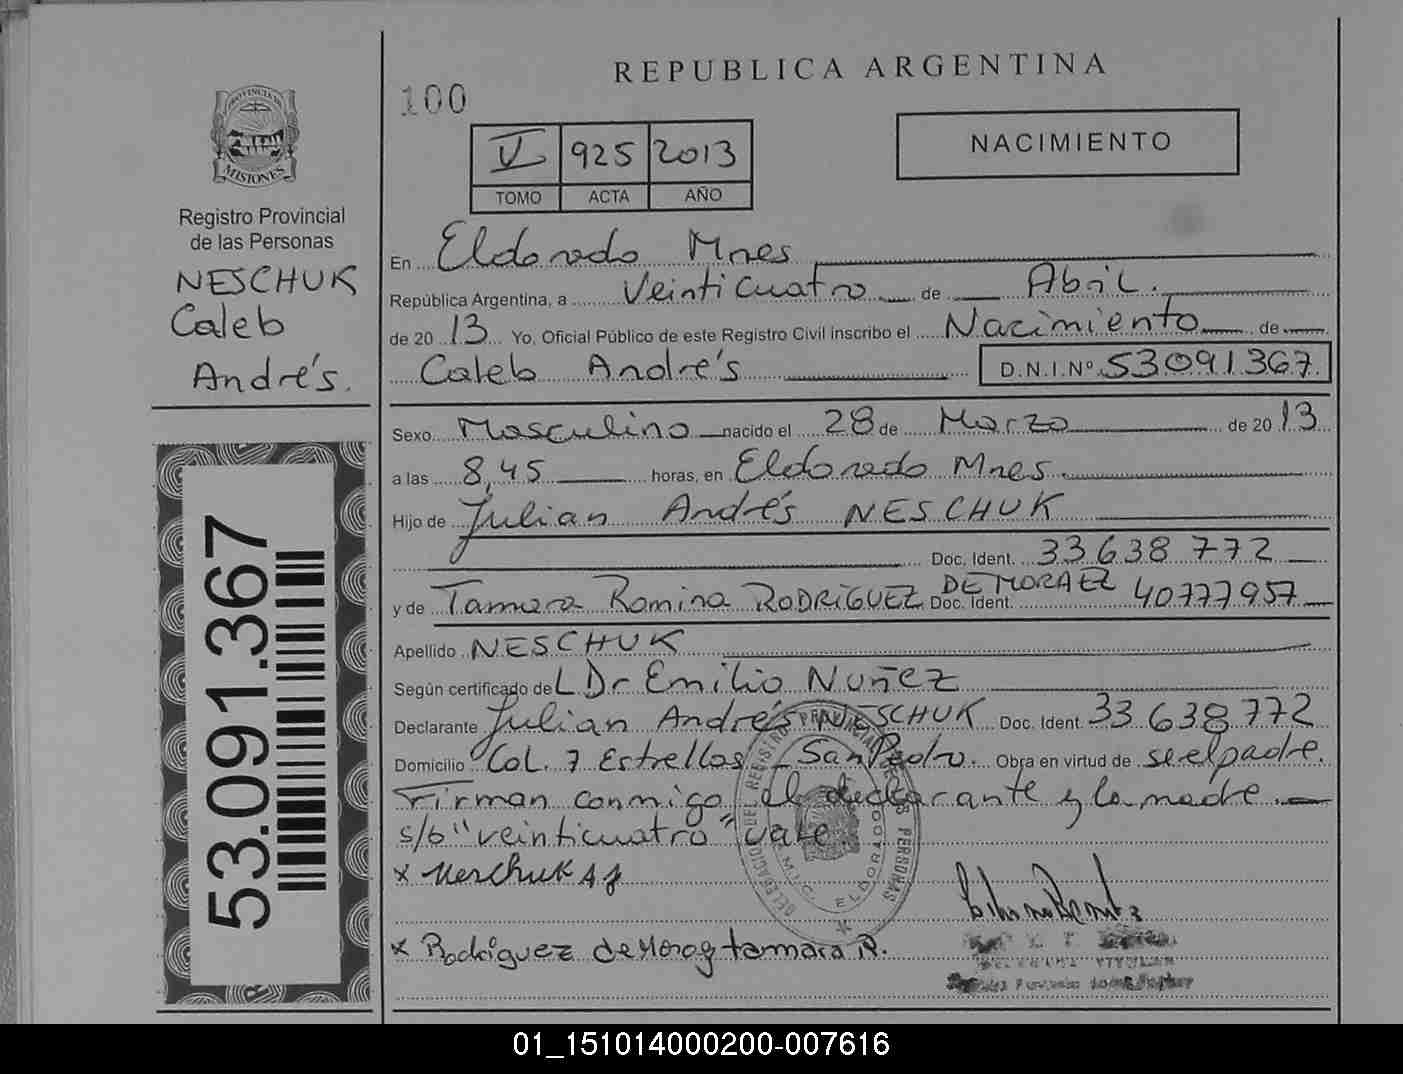 REPUBLICA ARGENTINA
100
V 925 2013
TOMO ACTA AÑO
NACIMIENTO
PROVINCIA DE
MISIONES
Registro Provincial
de las Personas
NESCHUK
Caleb
Andrés.
53.091.367
En Eldorado Mnes
República Argentina, a Veinticuatro de Abril.
de 20 13 Yo, Oficial Público de este Registro Civil inscribo el Nacimiento de
Caleb Andrés D.N.I.Nº 53091367.
Sexo Masculino nacido el 28 de Marzo de 20 13
a las 8,45 horas, en Eldorado Mnes.
Hijo de Julian Andrés NESCHUK
Doc. Ident. 33638772
y de Tamara Romina RODRIGUEZ DE MORAEZ Doc. Ident. 40777957
Apellido NESCHUK
Según certificado de L Dr Emilio Nuñez
Declarante Julian Andrés NESCHUK Doc. Ident. 33638772
Domicilio Col. 7 Estrellas - San Pedro. Obra en virtud de se el padre.
Firman conmigo el declarante y la madre.
s/b "veinticuatro" vale
x Neschuk A J
x Rodriguez de Moraez tamara R.
DELEGACION DEL REGISTRO PROVINCIAL DE LAS PERSONAS
ELDORADO
01_151014000200-007616